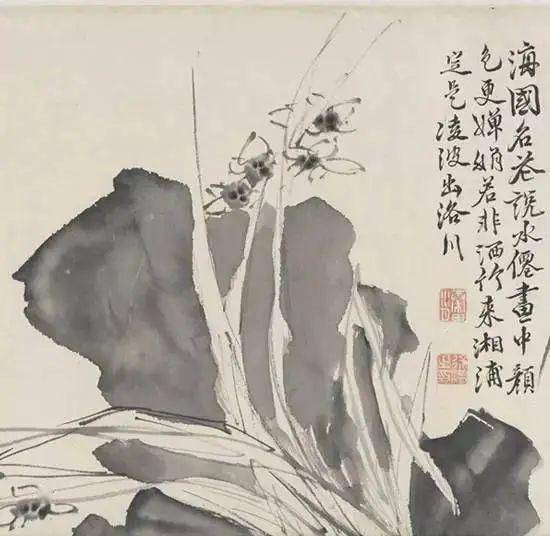 海國名花說水僊畫中顏
色更嬋娟若非洒竹来湘浦
定是凌波出洛川